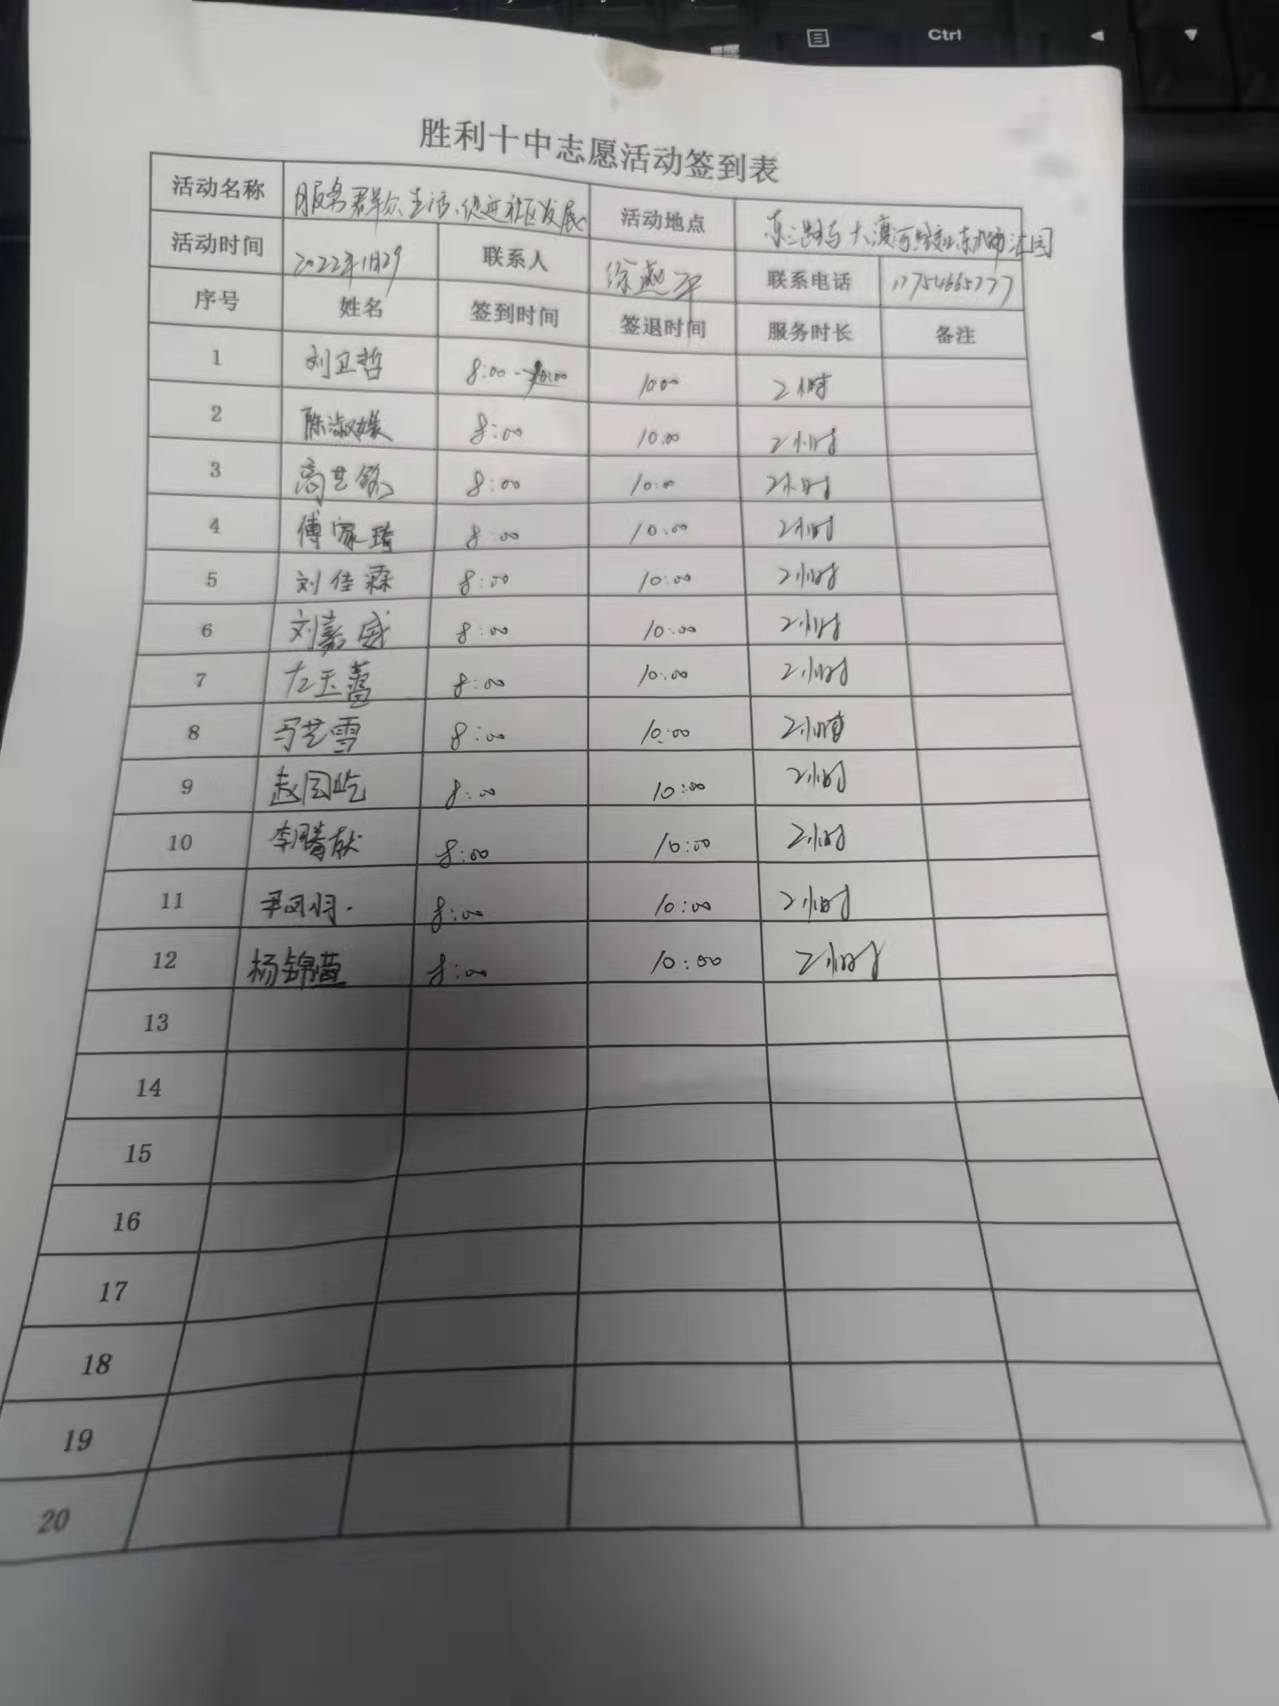 Ctrl
胜利十中志愿活动签到表
活动名称 服务群众生活,促进社区发展 活动地点 东三路与大渡河路交
活动时间 2022年1月29 联系人 徐 联系电话 17754665777
序号 姓名 签到时间 签退时间 服务时长 备注
1 刘卫哲 8:00 10:00 2小时
2 陈淑媛 8:00 10:00 2小时
3 高艺铭 8:00 10:00 2小时
4 傅家琦 8:00 10:00 2小时
5 刘佳霖 8:00 10:00 2小时
6 刘嘉威 8:00 10:00 2小时
7 左玉 8:00 10:00 2小时
8 马艺雪 8:00 10:00 2小时
9 赵国屹 8:00 10:00 2小时
10 李腾 8:00 10:00 2小时
11 8:00 10:00 2小时
12 杨锦萱 8:00 10:00 2小时
13
14
15
16
17
18
19
20